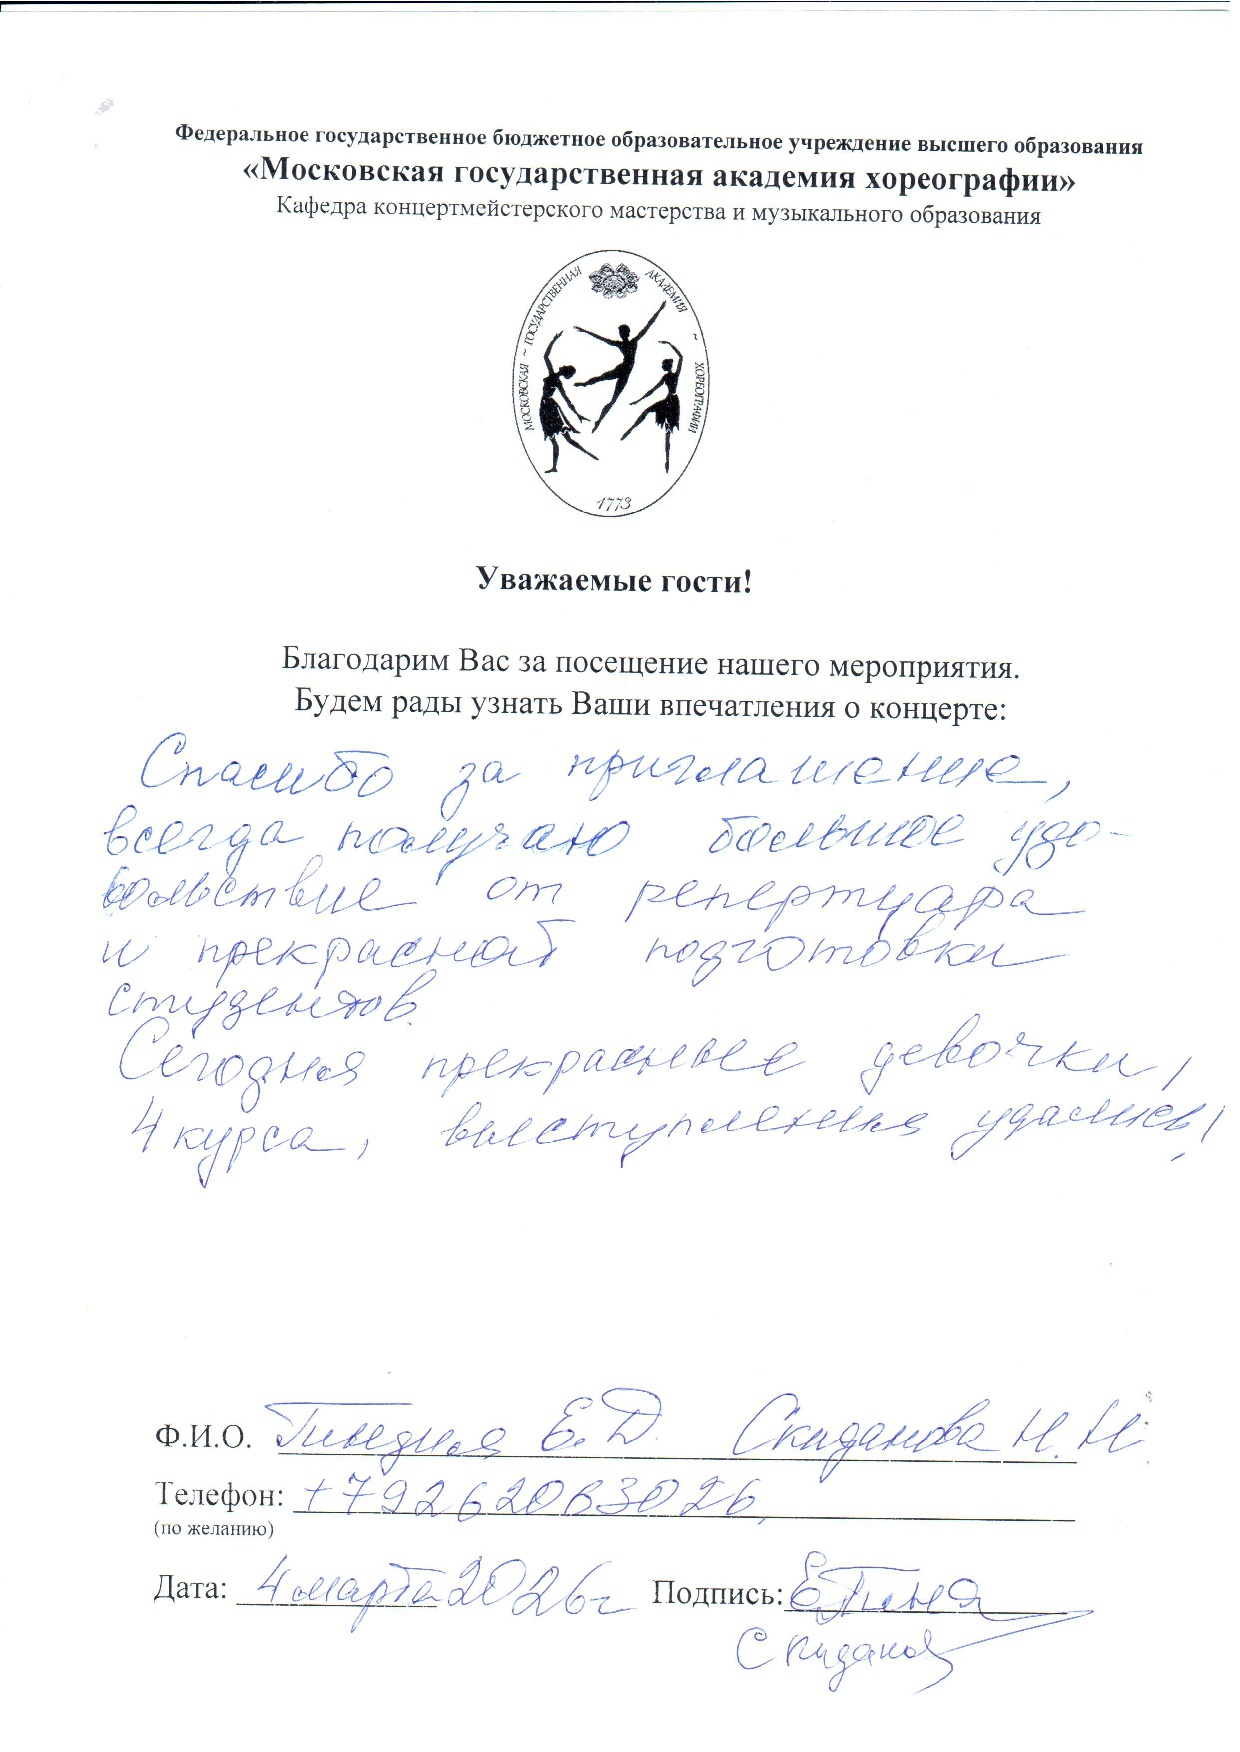 Федеральное государственное бюджетное образовательное учреждение высшего образования
«Московская государственная академия хореографии»
Кафедра концертмейстерского мастерства и музыкального образования
МОСКОВСКАЯ ~ ГОСУДАРСТВЕННАЯ АКАДЕМИЯ ~ ХОРЕОГРАФИИ
1773
Уважаемые гости!
Благодарим Вас за посещение нашего мероприятия.
Будем рады узнать Ваши впечатления о концерте:
Спасибо за приглашение,
всегда получаю большое удо-
вольствие от репертуара
и прекрасной подготовки
студентов.
Сегодня прекрасные девочки,
4 курса, выступления удались!
Ф.И.О. Е.Д. Скиданова Н.Н.
Телефон: +79262063026,
(по желанию)
Дата: 4 марта 2026г Подпись: